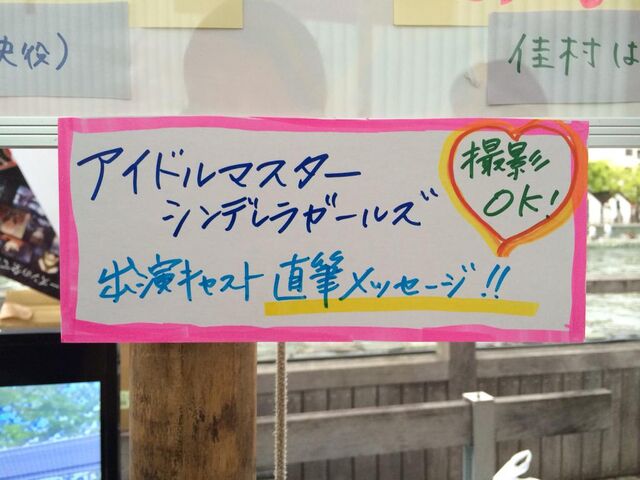 央役)
佳村は
アイドルマスター
シンデレラガールズ
撮影
OK!
出演キャスト 直筆メッセージ!!